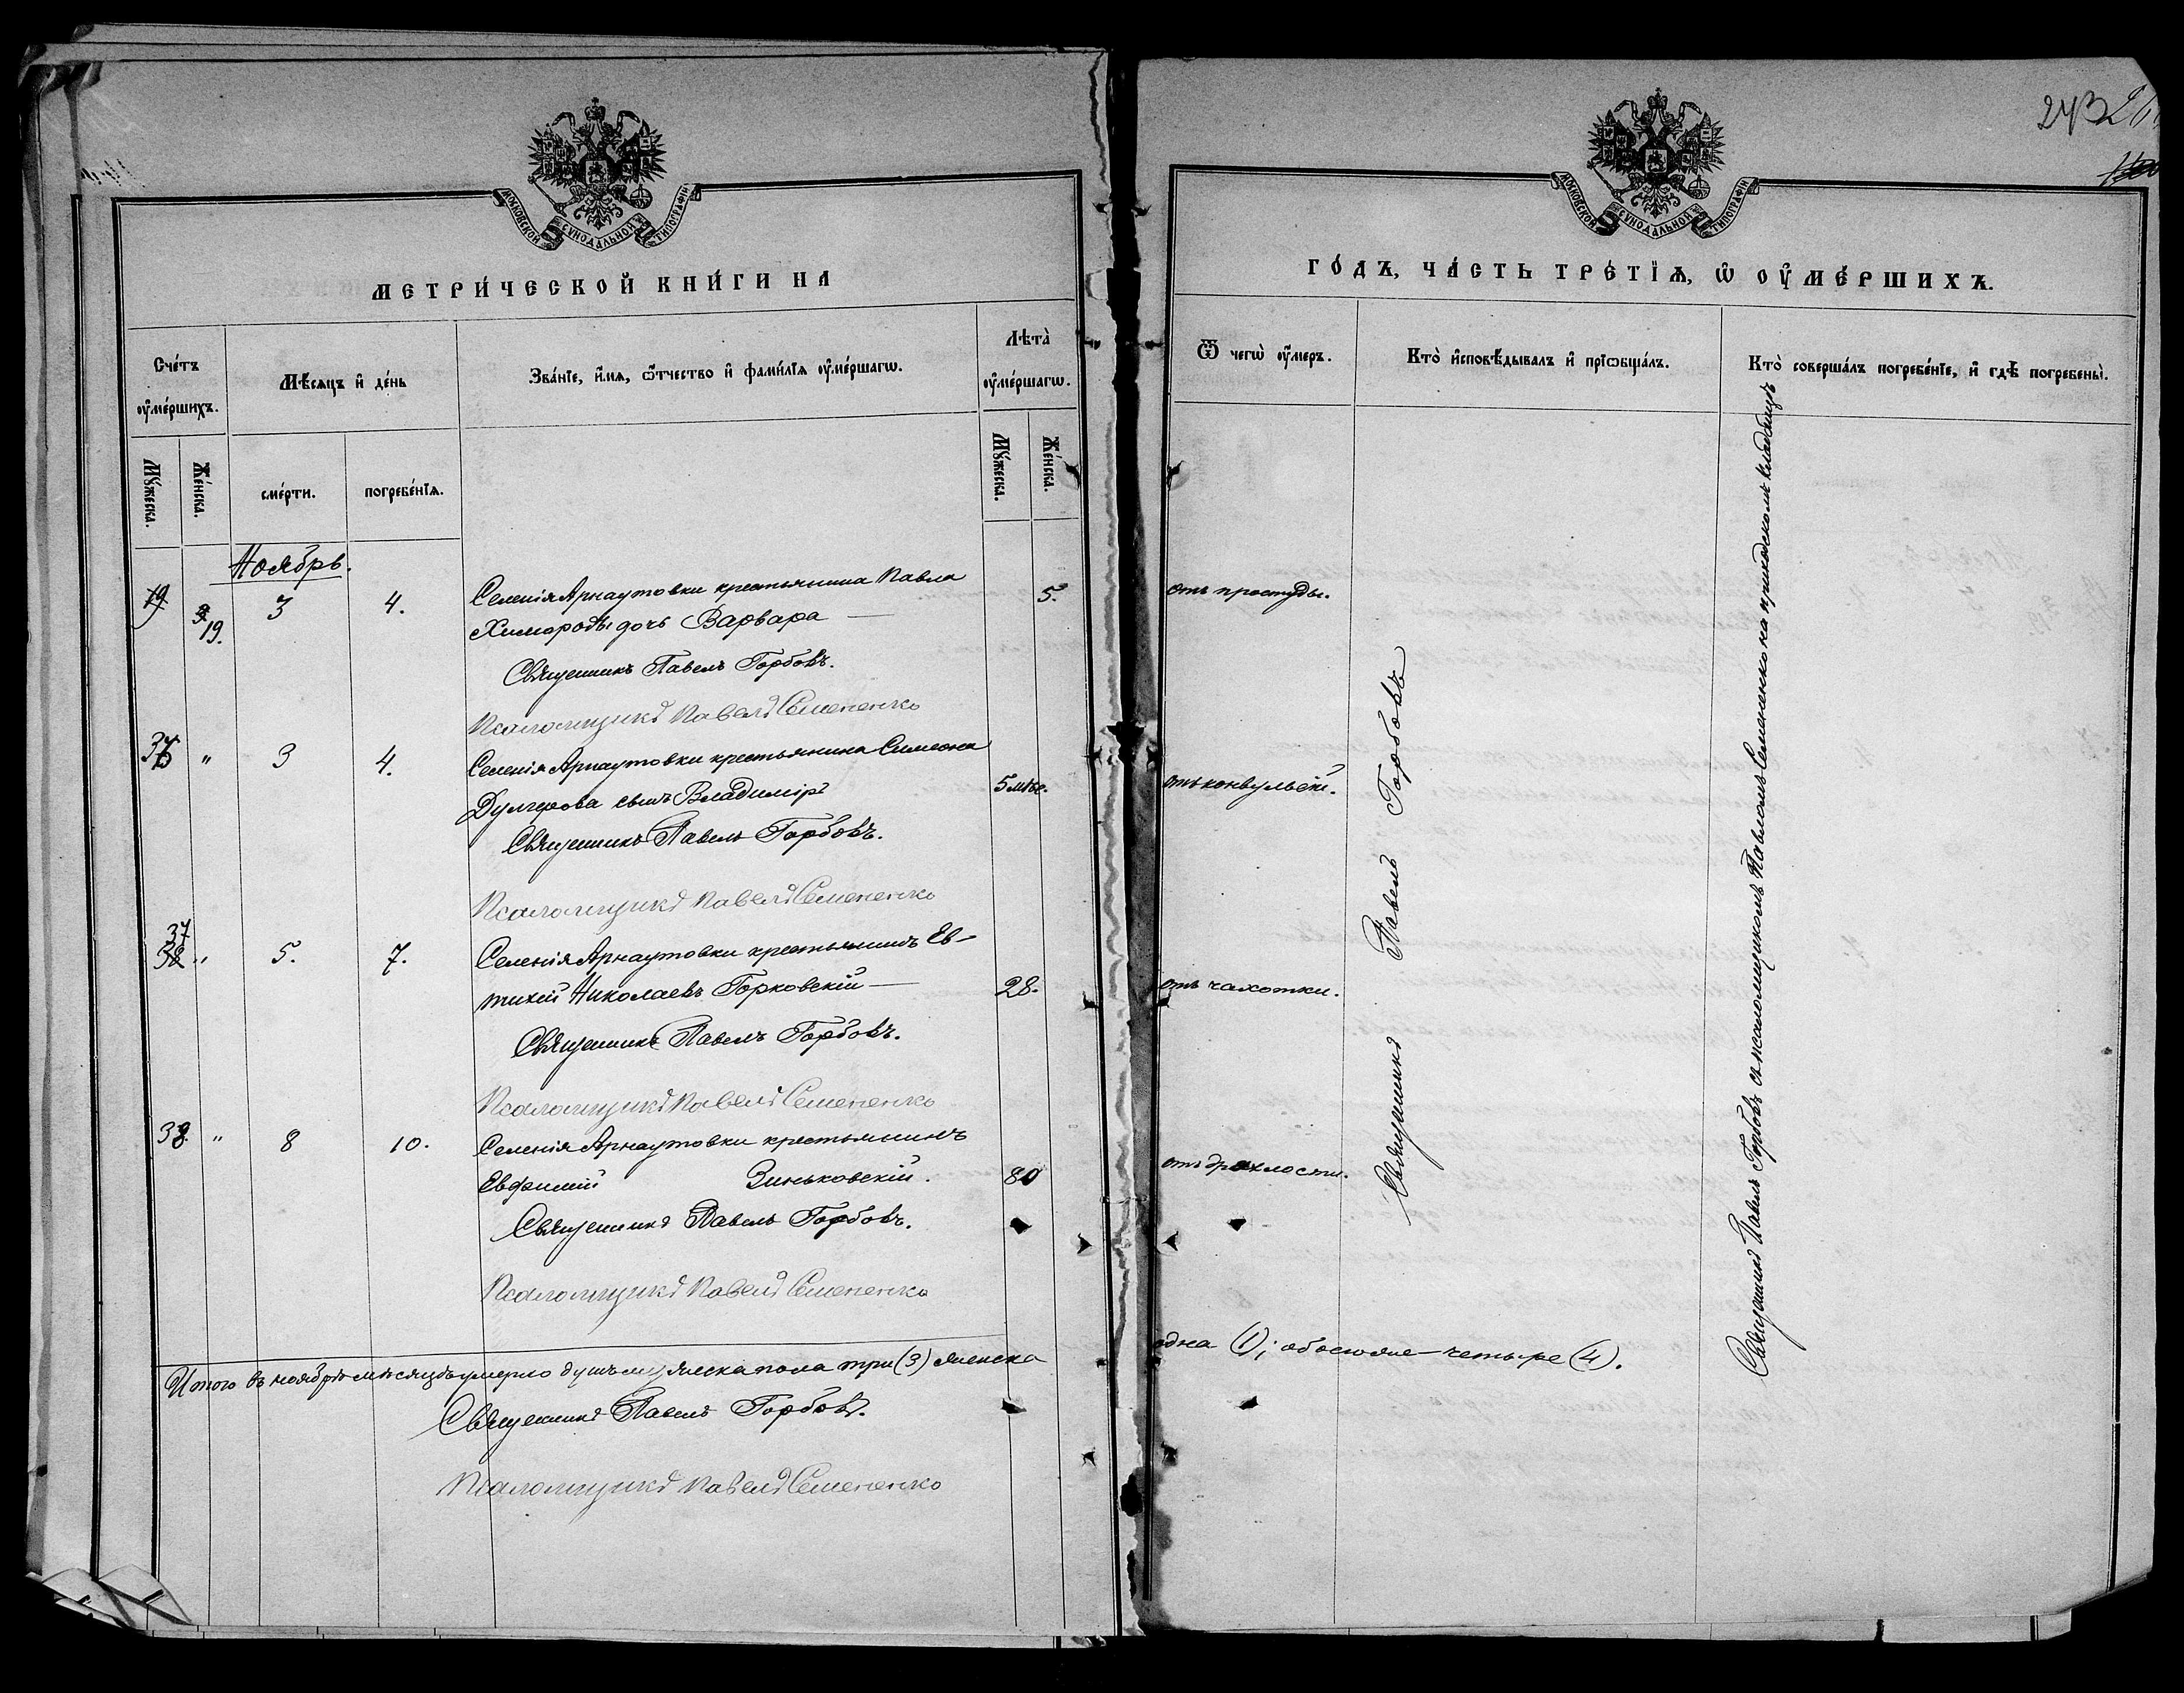 МОСКОВСКОЙ СѴНОДАЛЬНОЙ ТИПОГРАФІИ
МЕТРИ́ЧЕСКОЙ КНИ́ГИ НА
Сче́тъ ᲂу҆ме́ршихъ.
Мѣ́сяцъ и҆ де́нь
Зва́нїе, и҆́мя, ѻ҆́тчество и҆ фами́лїя ᲂу҆ме́ршагѡ.
Лѣта̀ ᲂу҆ме́ршагѡ.
Мꙋ́жеска.
Же́нска.
сме́рти.
погребе́нїѧ.
Мꙋ́жеска.
Же́нска.
Ноябрь.
19. 3 4. Селенія Арнаутовки крестьянина Павла 5.
дочь Варвара
Священникъ Павелъ Горбовъ.
Псаломщикъ Павелъ Семененко
" 3 4. Селенія Арнаутовки крестьянина Симеона
Дулгерова сынъ Владиміръ 5 мѣс.
Священникъ Павелъ Горбовъ.
Псаломщикъ Павелъ Семененко
37 " 5. 7. Селенія Арнаутовки крестьянинъ Ев-
тихій Николаевъ Горковскій 28.
Священникъ Павелъ Горбовъ.
Псаломщикъ Павелъ Семененко
38. " 8 10. Селенія Арнаутовки крестьянинъ
Евфимій Зиньковскій. 80
Священникъ Павелъ Горбовъ.
Псаломщикъ Павелъ Семененко
Итого въ ноябрѣ мѣсяцѣ умерло душъ мужеска пола три (3) женска
Священникъ Павелъ Горбовъ.
Псаломщикъ Павелъ Семененко
243
МОСКОВСКОЙ СѴНОДАЛЬНОЙ ТИПОГРАФІИ
ГО́ДЪ, ЧА́СТЬ ТРЕ́ТЇѦ, Ѡ҆ ОУ҆МЕ́РШИХЪ.
Ѿ чегѡ̀ ᲂу҆́меръ.
Кто̀ и҆сповѣ́дывалъ и҆ прїѡбща́лъ.
Кто̀ соверша́лъ погребе́нїе, и҆ гдѣ̀ погребены̀.
отъ простуды.
отъ конвульсій.
отъ чахотки.
отъ дряхлости.
Священникъ Павелъ Горбовъ
Священникъ Павелъ Горбовъ съ псаломщикомъ Павломъ Семененко на приходскомъ кладбищѣ
одна (1); обоего же четыре (4).